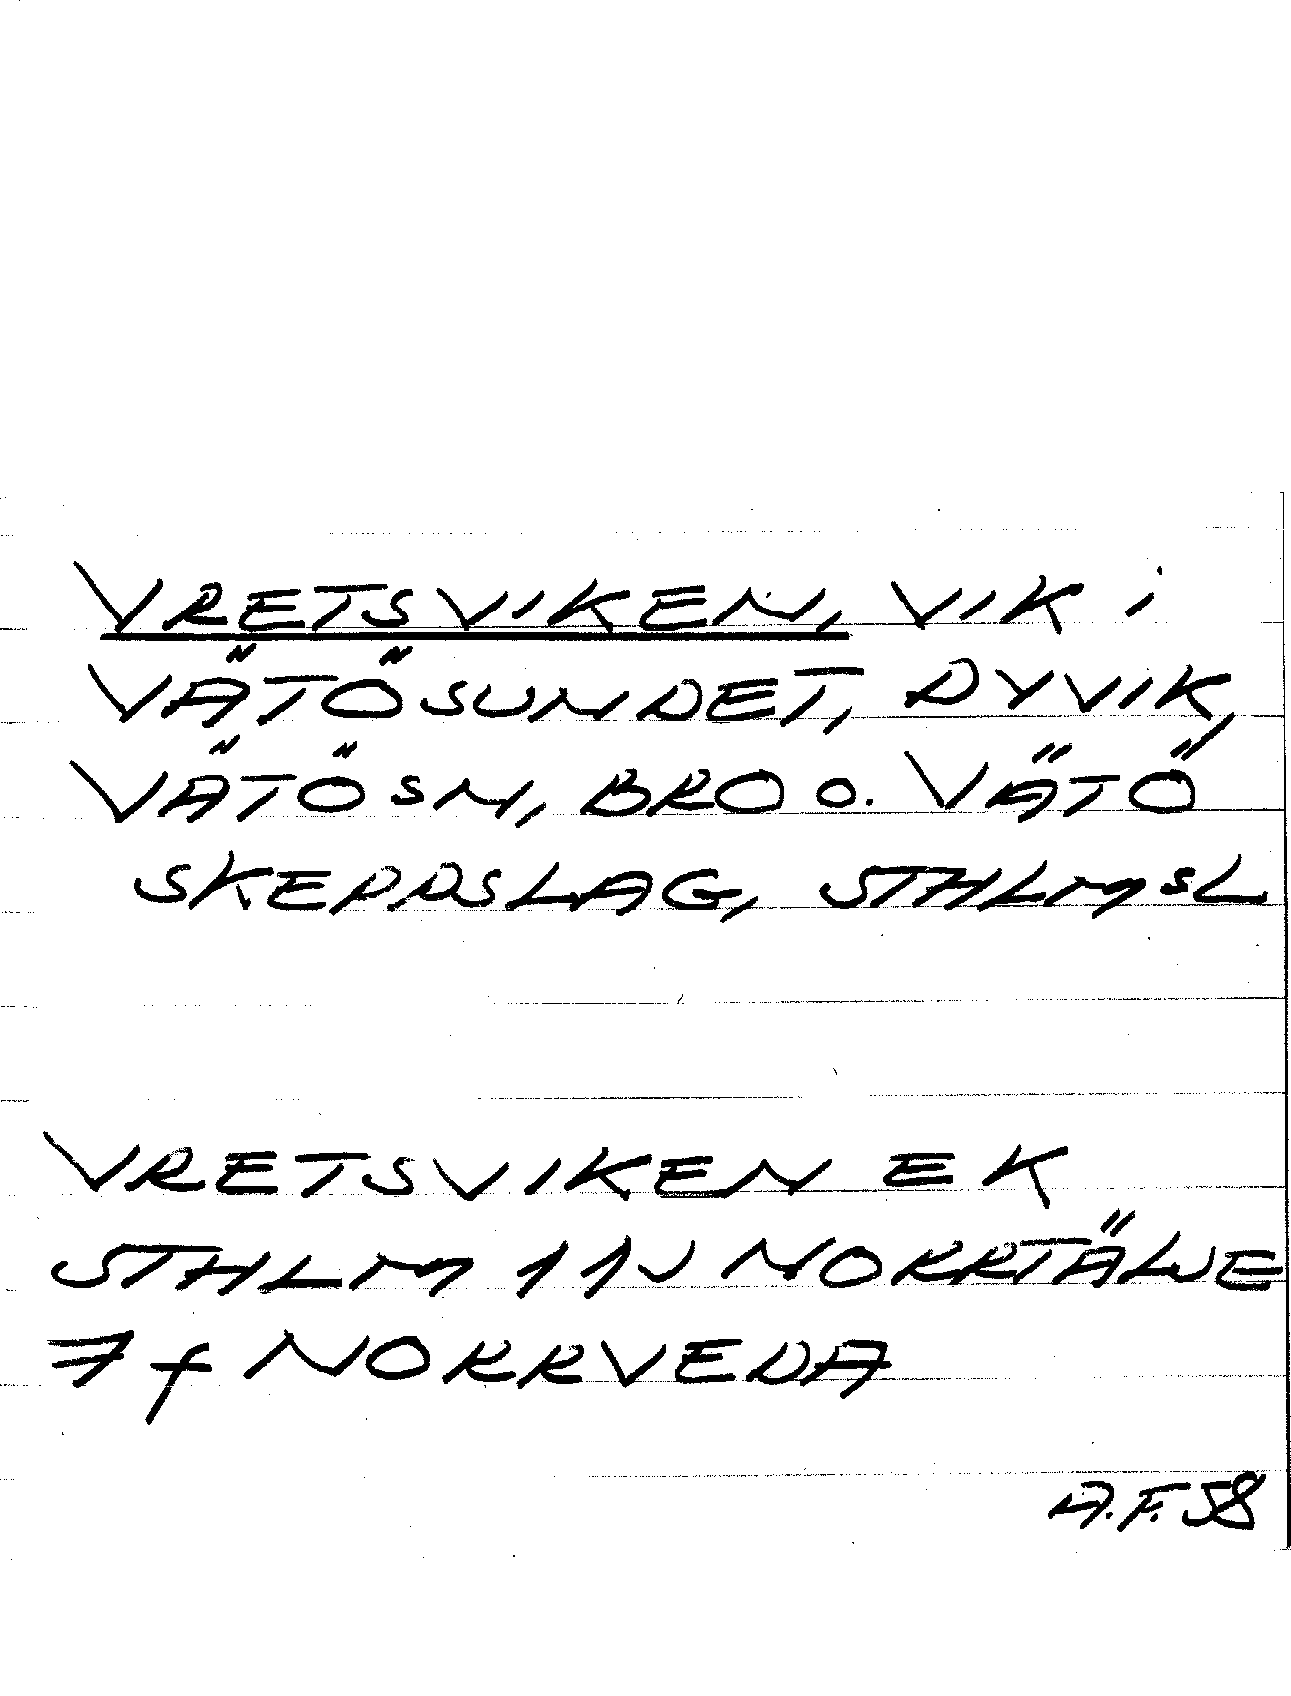 VRETSVIKEN, VIK i
VÄTÖSUNDET, DYVIK,
VÄTÖ SN, BRO O. VÄTÖ
SKEPPSLAG, STHLMS L
VRETSVIKEN EK
STHLM 11J NORRTÄLJE
7f NORRVEDA
A.F. 58